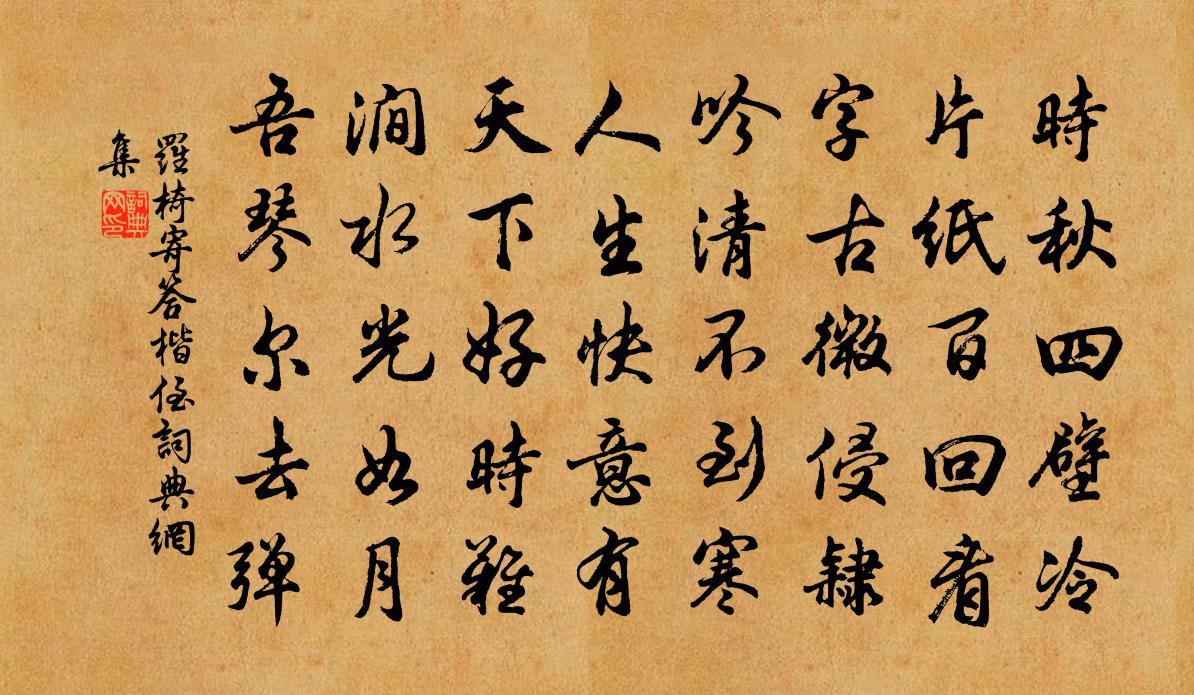 時秋四壁冷
片紙百回看
字古微侵隸
吟清不到寒
人生快意有
天下好時難
澗水光如月
吾琴尔去弹
羅椅寄答楷侄詞典網
集
詞典
网印